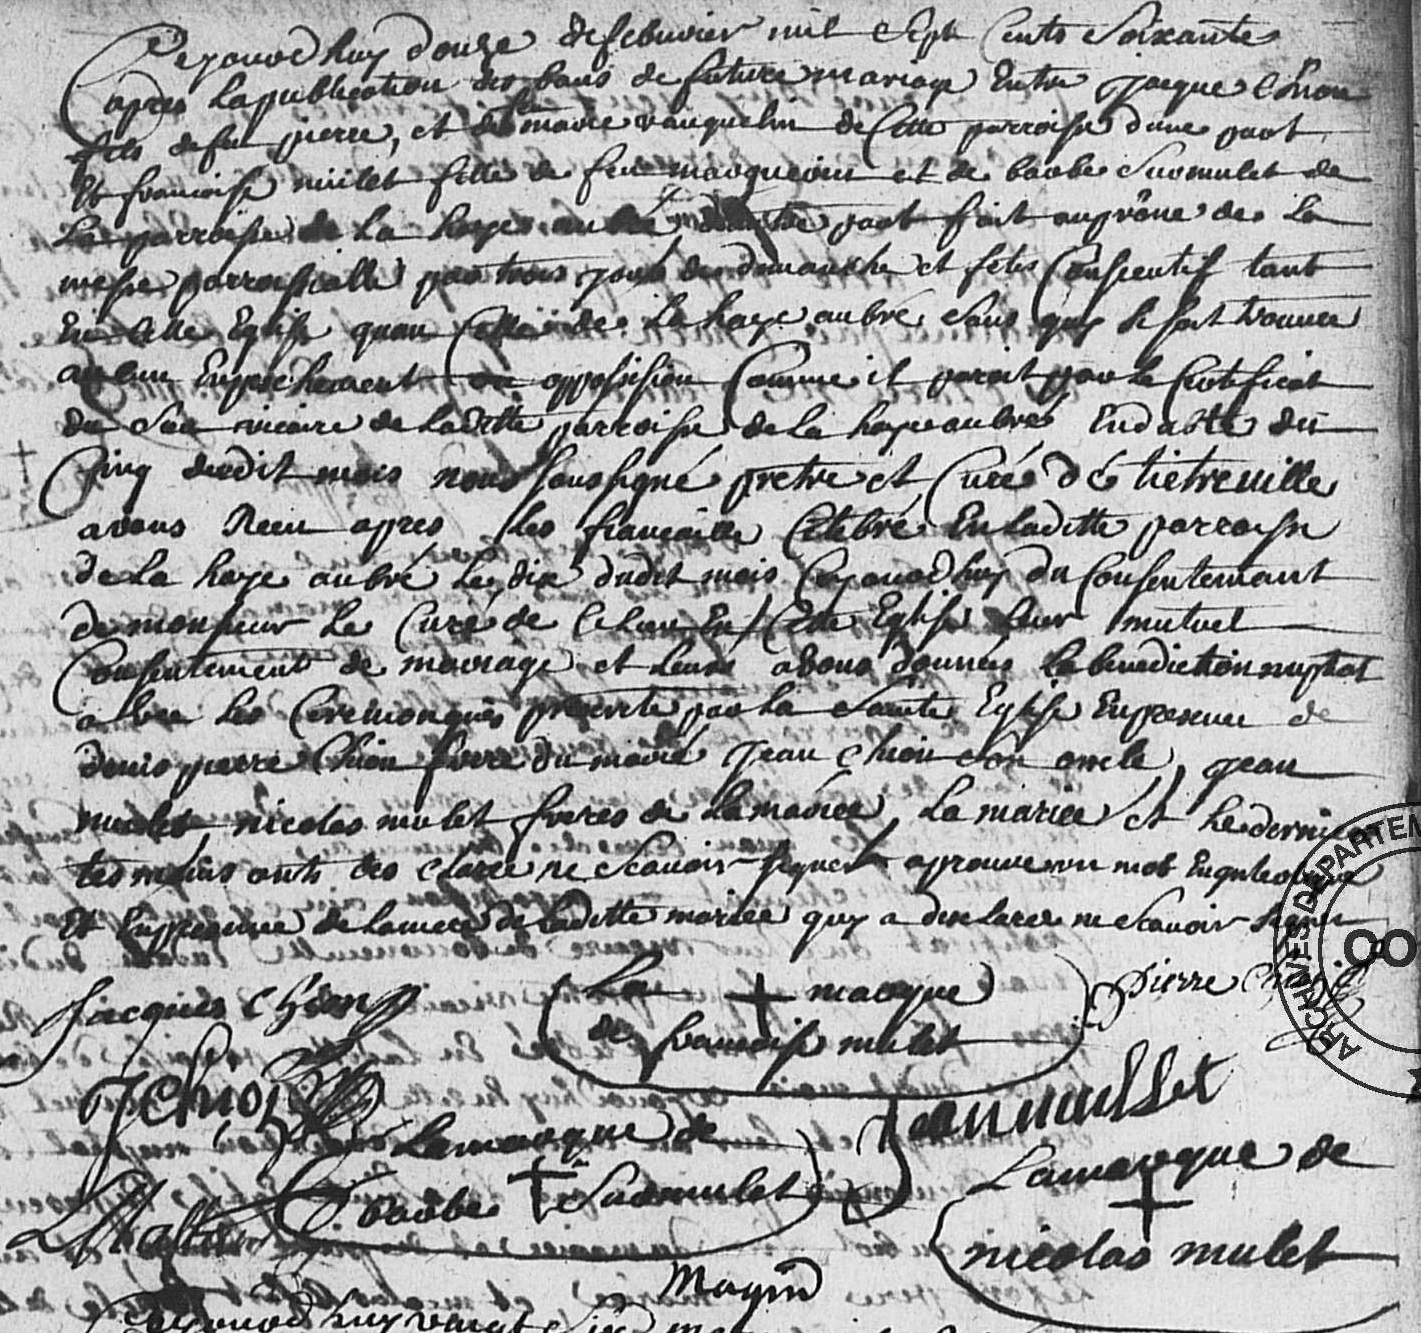 Ce jourd huy douze de febuvier mil sept cents soixante
apres la publication des bans de future mariage Entre jacque Chion
fils de feu pierre, et de marie vauquelin de Cette parroisse dune part
Et francoise mulet fille de feu et de barbe Suomulet de
La parroisse de La haye aubré dautre part fait au prône de La
messe parroissialle par trois jours de dimanche et fêtes Consecutif tant
En Cette Eglise quen Celle de La haye aubré sans quy se soit trouvée
aucun Empechement ou opposision Comme il paroit par le Certificat
du Sieur vicaire de Laditte parroisse de la haye aubré En datte du
Cinq dudit mois nous soussigné pretre et Curée d'étietreville
avons Receu apres les fiancaille Celebré En Laditte parroisse
de La haye aubré Le dix dudit mois Ce jourd huy du Consentement
de monsieur Le Curé de En Cette Eglise Leur mutuel
Consentement de mariage et Leurs avons données La benediction nuptial
avec Les Ceremonques prescrite par La Sainte Eglise En presence de
denis pierre Chion frere du marié Jean Chion son oncle, jean
mulet, nicolas mulet freres de La mariée, La mariée et Le dernier
tesmoins onts des claree ne scavoir signer aprouve un mot En guleosne
Et En presence de La mere de Laditte mariée quy a desclaree ne scavoir signer
jacques Chion
La marque
de francoise mulet
Pierre Chion
J Chion
Jean mullet
La marque de
barbe Suomulet
La marque de
nicolas mulet
Ce jourd huy vingt
ARCHIVES DEPARTEM